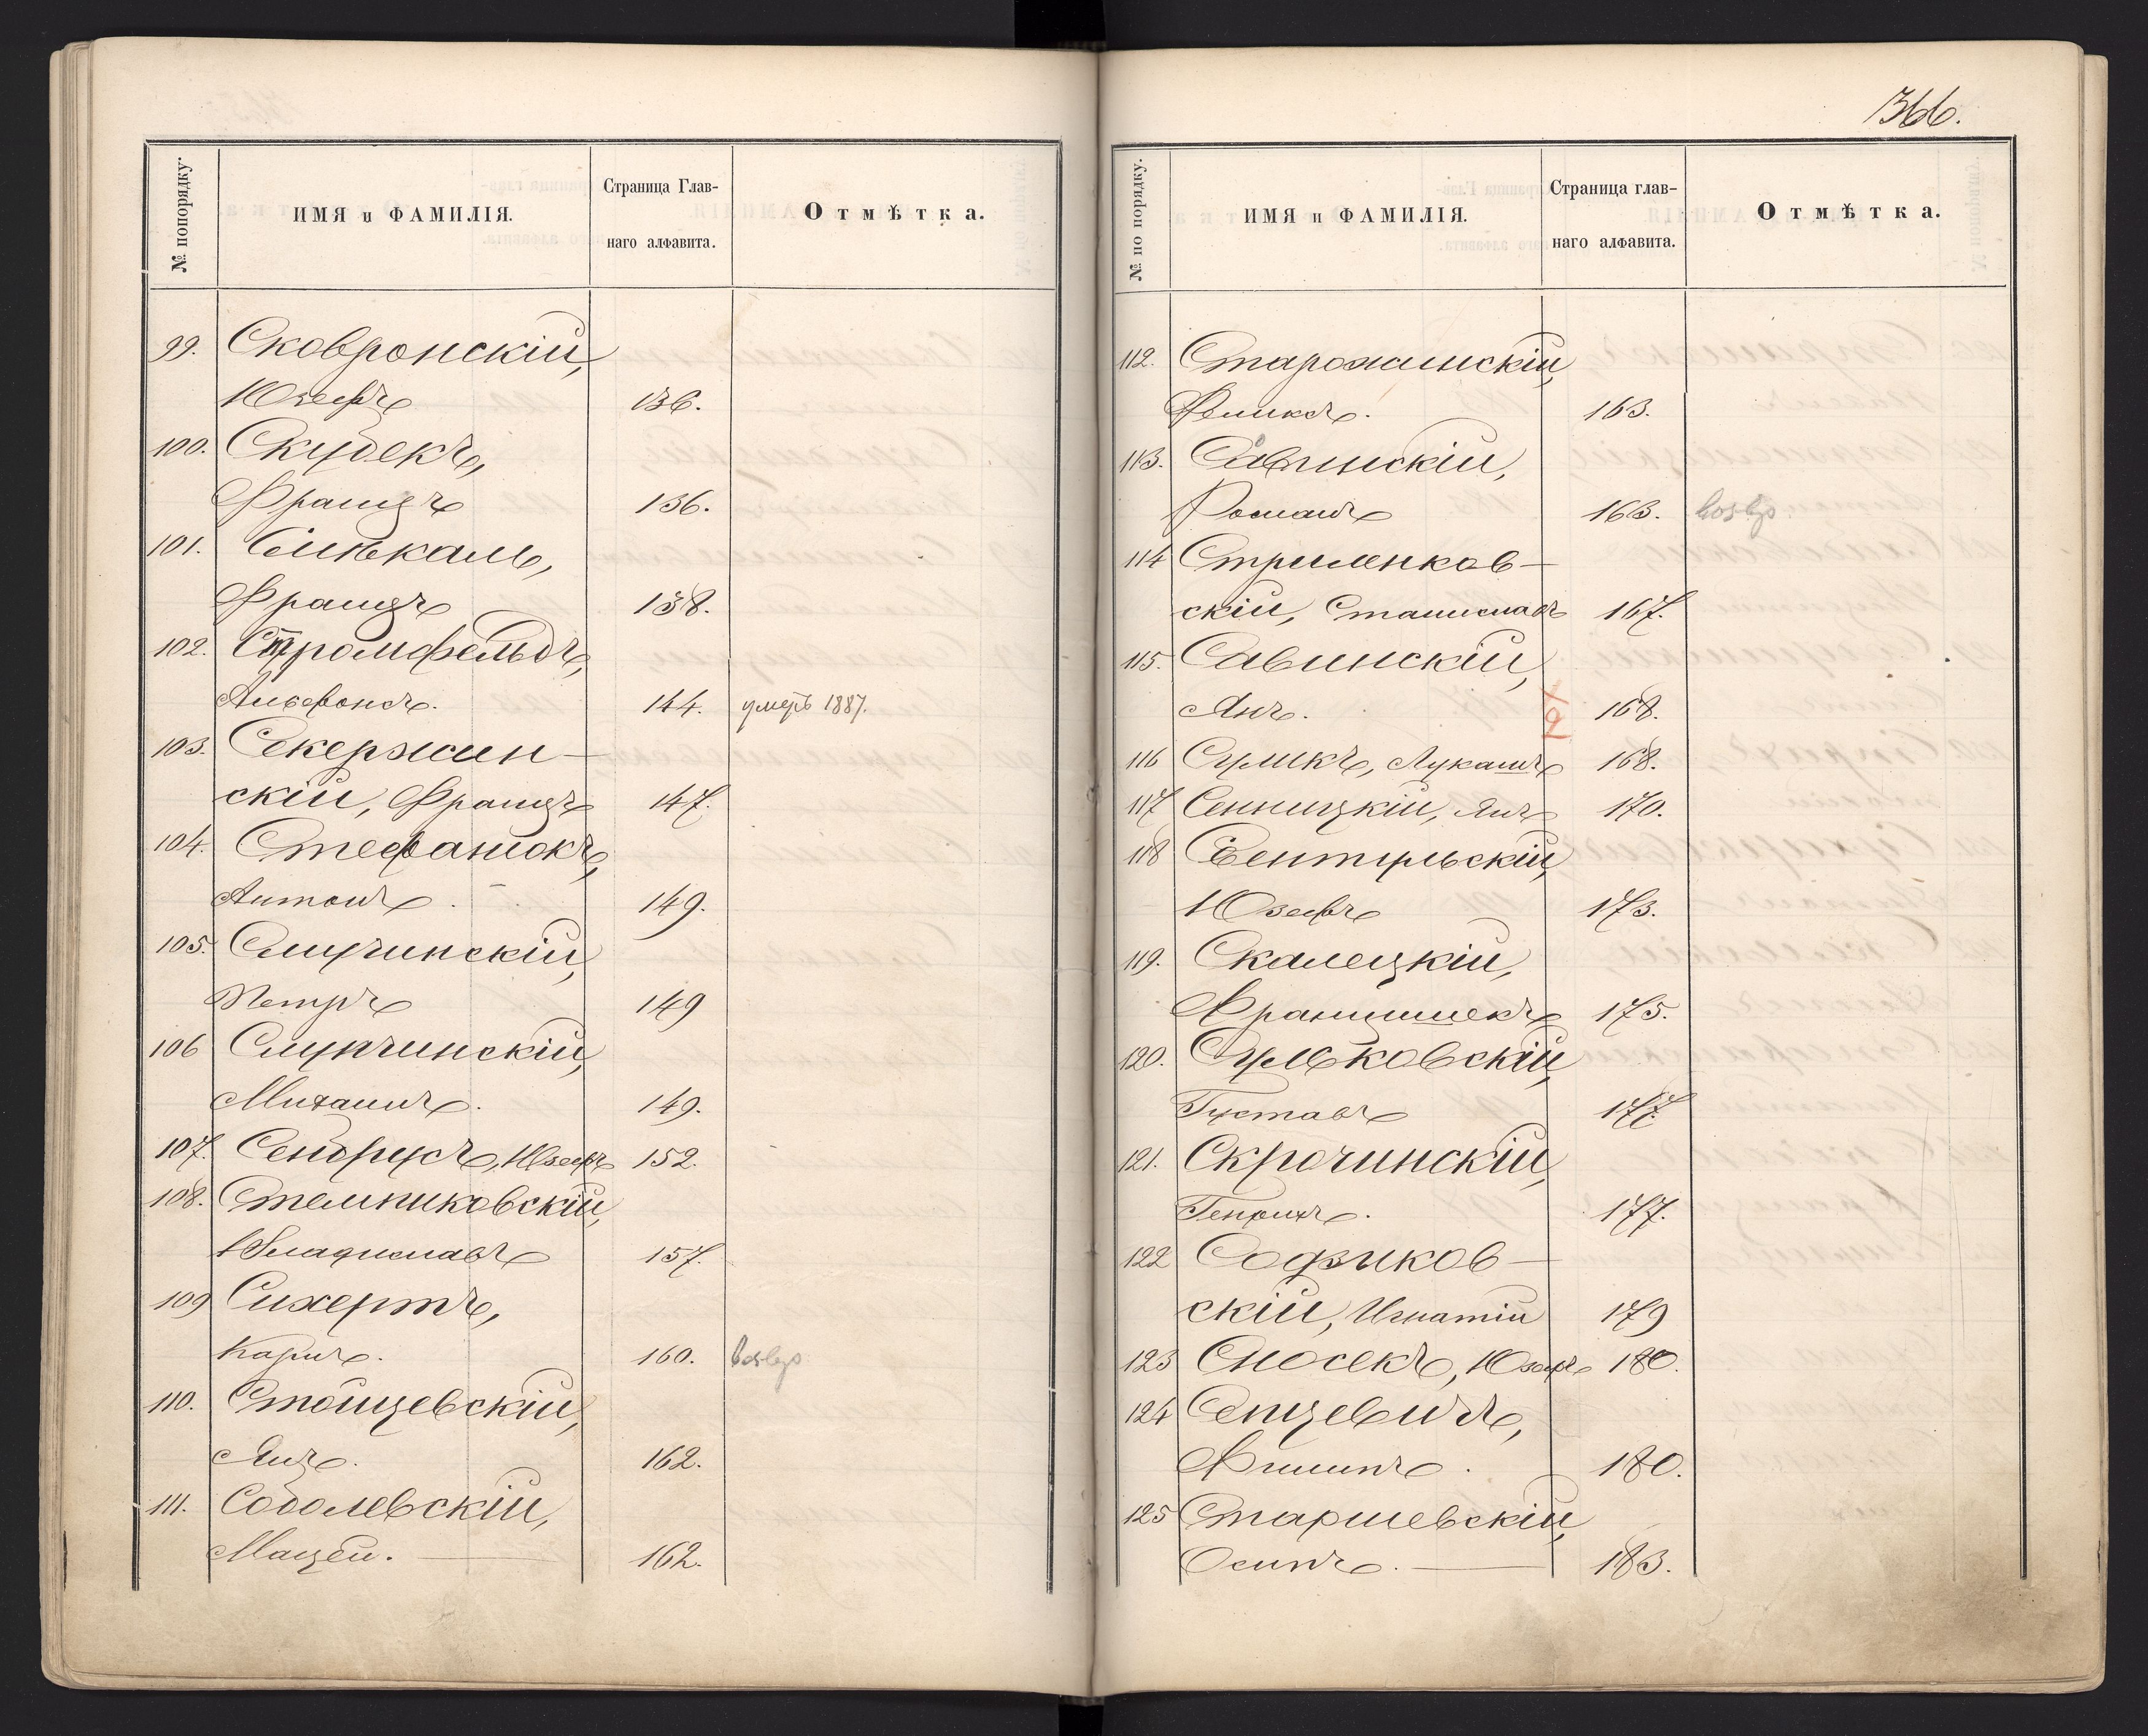 № попорядку.
ИМЯ и ФАМИЛІЯ.
Страница Глав-
наго алфавита.
Отмѣтка.
99. Сковронскій,
Юзефъ 136.
100. Скудекъ,
Францъ 136.
101. Синѣкаль,
Францъ 138.
102. Стромфельдъ,
Альфонсъ. 144. умеръ 1887.
103. Секержин-
скій, Францъ 147.
104. Стефанюкъ,
Антонъ 149.
105. Слупчинскій,
Петръ 149
106 Слупчинскій,
Михаилъ. 149.
107. Сендрусъ, Юзефъ 152.
108. Стемпиковскій,
Владиславъ 157.
109 Сихертъ,
Карлъ. 160. возвр.
110. Стоищевскій,
Янъ. 162.
111. Соболевскій,
Мацей. 162.
366.
№ по порядку.
ИМЯ и ФАМИЛІЯ.
Страница глав-
наго алфавита.
Отмѣтка.
112. Старожинскій,
Феликсъ. 163.
113. Савинскій,
Романъ 163. возвр.
114 Стрыленков-
скій, Станиславъ 167.
115. Савинскій,
Янъ. 168.
116 Суликъ, Лукашъ 168.
117 Сенницкій, Янъ 170.
118 Сентурьскій,
Юзефъ 173.
119. Скалецкій,
Францишекъ 175.
120. Сульковскій,
Густавъ 177.
121. Скрочинскій,
Генрихъ. 177.
122 Содзиков-
скій, Игнатій 179
123 Сносекъ, Юзефъ 180.
124 Сенцевичъ,
Филипъ. 180.
125 Старшевскій,
Осипъ. 183.